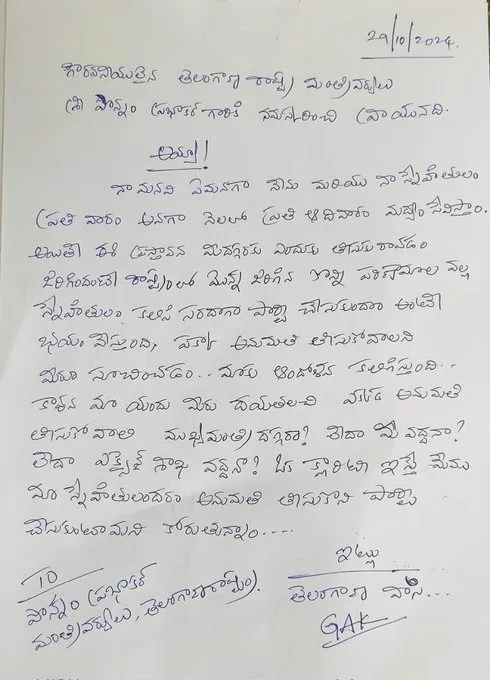 29/10/2024.
గౌరవనీయులైన తెలంగాణ రాష్ట్ర మంత్రివర్యులు
శ్రీ పొన్నం ప్రభాకర్ గారికి నమస్కరించి వ్రాయునది.
అయ్యా!
నా మనవి ఏమనగా నేను మరియు నా స్నేహితులం
ప్రతి వారం అనగా నెలలో ప్రతి ఆదివారం మద్యం సేవిస్తాం.
అయితే ఈ ప్రస్తావన మీదగ్గరకు ఎందుకు తీసుకు రావడం
జరిగిందంటే రాష్ట్రంలో మొన్న జరిగిన కొన్ని పరిణామాల వల్ల
స్నేహితులం కలిసి సరదాగా పార్టీ చేసుకుందాం అంటే
భయం వేస్తుంది, అనుమతి తీసుకోవాలని
మీరూ సూచించడం.. మాకు ఆందోళన కలిగిస్తుంది..
కావున మా యందు మీరు దయతలచి ఎక్కడ అనుమతి
తీసుకోవాలి ముఖ్యమంత్రి దగ్గరా? లేదా మీ వద్దనా?
లేదా ఎక్సైజ్ శాఖ వద్దనా? ఓక క్లారిటీ ఇస్తే మేము
మా స్నేహితులందరం అనుమతి తీసుకొని పార్టీ
చేసుకుంటామని కోరుతున్నాం....
ఇట్లు
తెలంగాణ వాసి...
GAK
TO
పొన్నం ప్రభాకర్
మంత్రివర్యులు, తెలంగాణరాష్ట్రం.